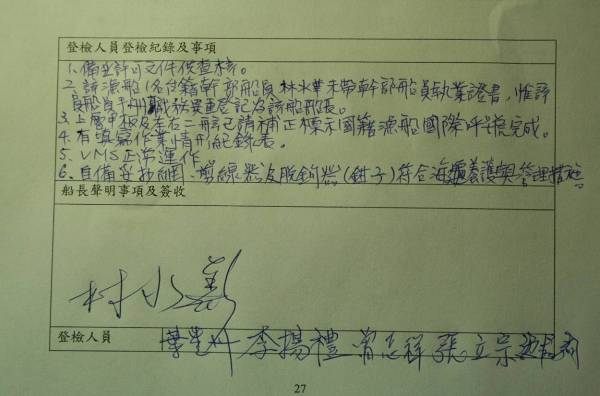 登檢人員登檢紀錄及事項
1、備全許可文件供查核。
2、該漁船1名台籍幹部船員林水華未帶幹部船員執業證書,惟該
員船員手冊職務異動登記為該船船長。
3、上層甲板及左右二舷已請補正標示國籍漁船國際呼號完成。
4、有填寫作業情形紀錄表。
5、VMS正常運作
6、自備手抄網、剪線器及脫鉤器(鉗子)符合海龜養護與管理措施
船長聲明事項及簽收
林水
登檢人員
李揚禮 曾志祥 張立宗
27